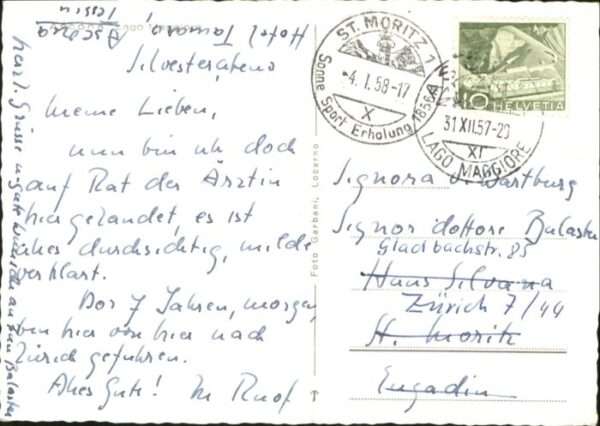 Hotel Tamaro, Ascona
Tessin
Silvesterabend
Meine Lieben,
nun bin ich doch
auf Rat der Ärztin
hier gelandet, es ist
alles durchsichtig, milde
verklärt.
Vor 7 Jahren, morgen,
bin ich von hier nach
Zürich gefahren.
Alles Gute!
herzl. Grüsse u. gute Wünsche an Frau Balaster
Foto Garbani, Locarno
ST. MORITZ 1
-4.I.58-17
X
Sonne Sport Erholung 1856
31.XII.57-20
XI
LAGO MAGGIORE
10 HELVETIA
Signora v. Wartburg
Signor dottore Balaster
Gladbachstr. 85
Haus Silvana
Zürich 7/44
St. Moritz
Engadin